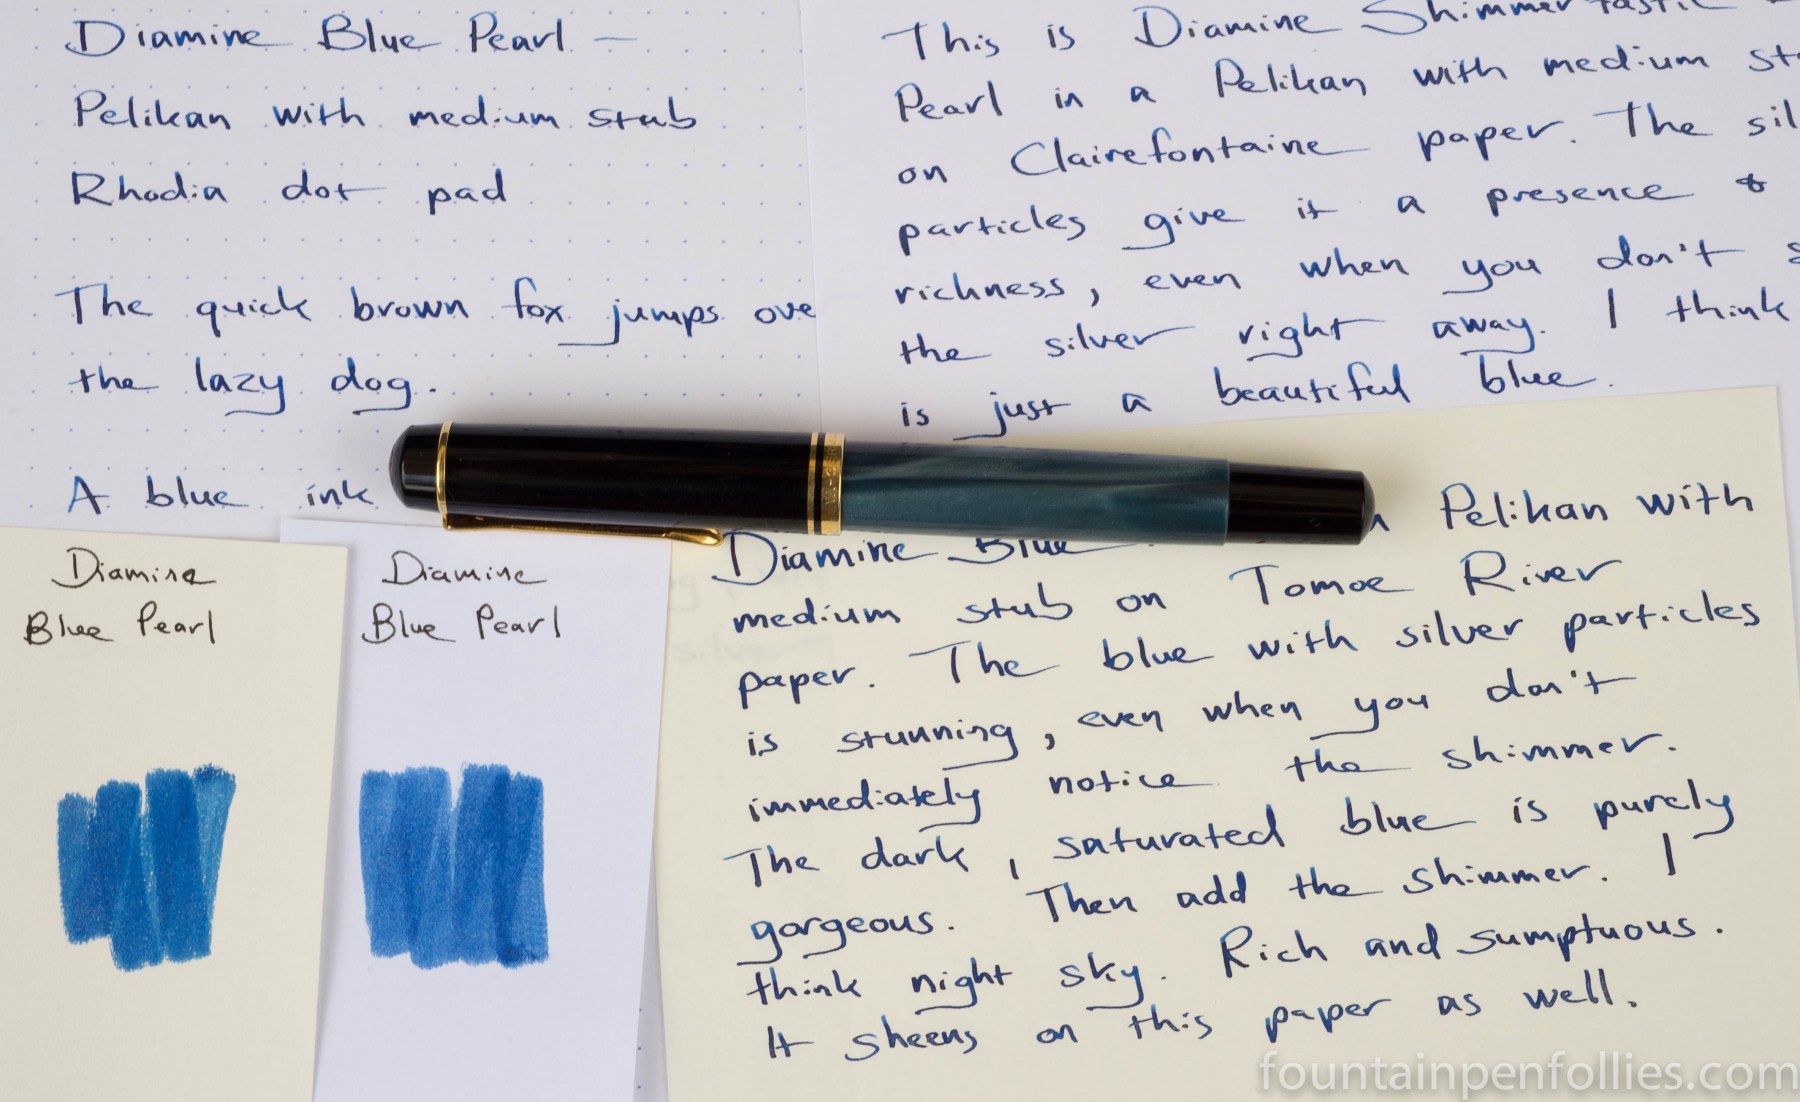 Diamine Blue Pearl —
Pelikan with medium stub
Rhodia dot pad
The quick brown fox jumps ove
the lazy dog.
A blue ink
This is Diamine Shimmertastic
Pearl in a Pelikan with medium st
on Clairefontaine paper. The sil
particles give it a presence &
richness, even when you don't s
the silver right away. I think
is just a beautiful blue.
Diamine
Blue Pearl
Diamine
Blue Pearl
Diamine Blue Pelikan with
medium stub on Tomoe River
paper. The blue with silver particles
is stunning, even when you don't
immediately notice the shimmer.
The dark, saturated blue is purely
gorgeous. Then add the shimmer. I
think night sky. Rich and sumptuous.
It sheens on this paper as well.
silver
fountainpenfollies.com